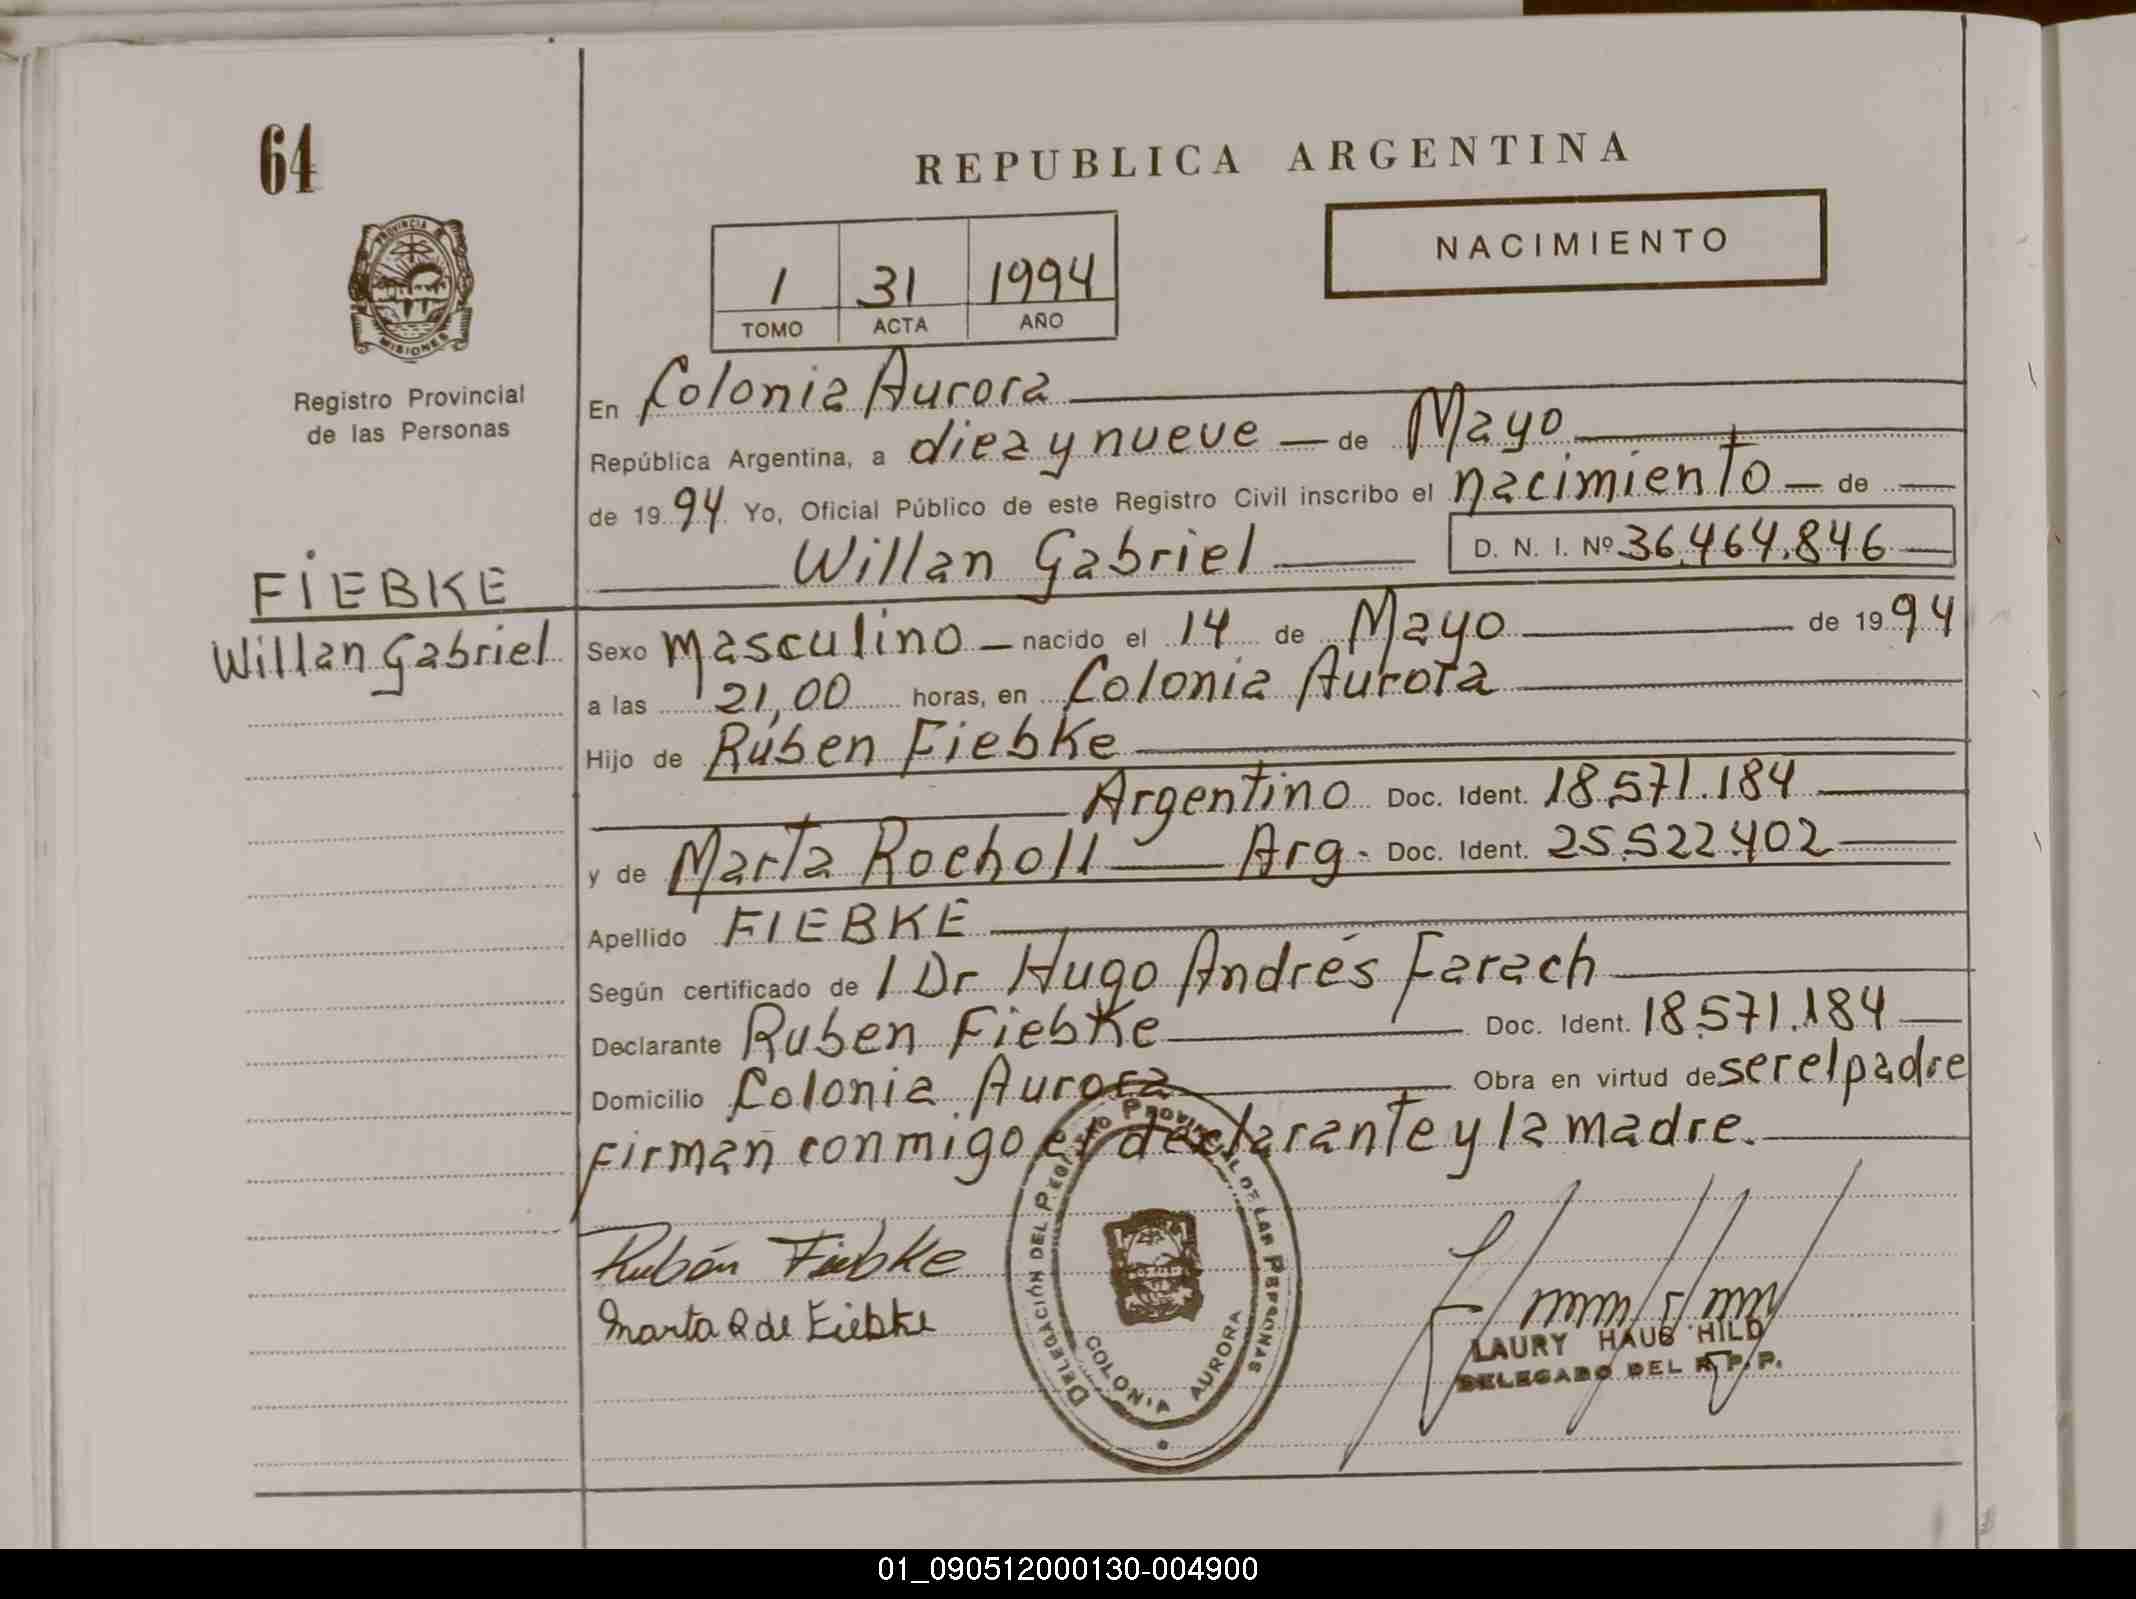 64
REPUBLICA ARGENTINA
NACIMIENTO
1 31 1994
TOMO ACTA AÑO
PROVINCIA DE MISIONES
Registro Provincial
de las Personas
FIEBKE
Willan Gabriel
En Colonia Aurora
República Argentina, a diez y nueve de Mayo
de 1994 Yo, Oficial Público de este Registro Civil inscribo el nacimiento de
Willan Gabriel D. N. I. Nº 36.464.846
Sexo masculino nacido el 14 de Mayo de 1994
a las 21,00 horas, en Colonia Aurora
Hijo de Rúben Fiebke
Argentino Doc. Ident. 18.571.184
y de Marta Rocholl Arg. Doc. Ident. 25.522.402
Apellido FIEBKE
Según certificado de l Dr Hugo Andrés Farach
Declarante Ruben Fiebke Doc. Ident. 18.571.184
Domicilio Colonia Aurora Obra en virtud de ser el padre
Firman conmigo el declarante y la madre.
Rubén Fiebke
Marta R de Fiebke
DELEGACIÓN DEL REGISTRO PROVINCIAL DE LAS PERSONAS
COLONIA AURORA
LAURY HAUS HILD
DELEGADO DEL R.P.P.
01_090512000130-004900